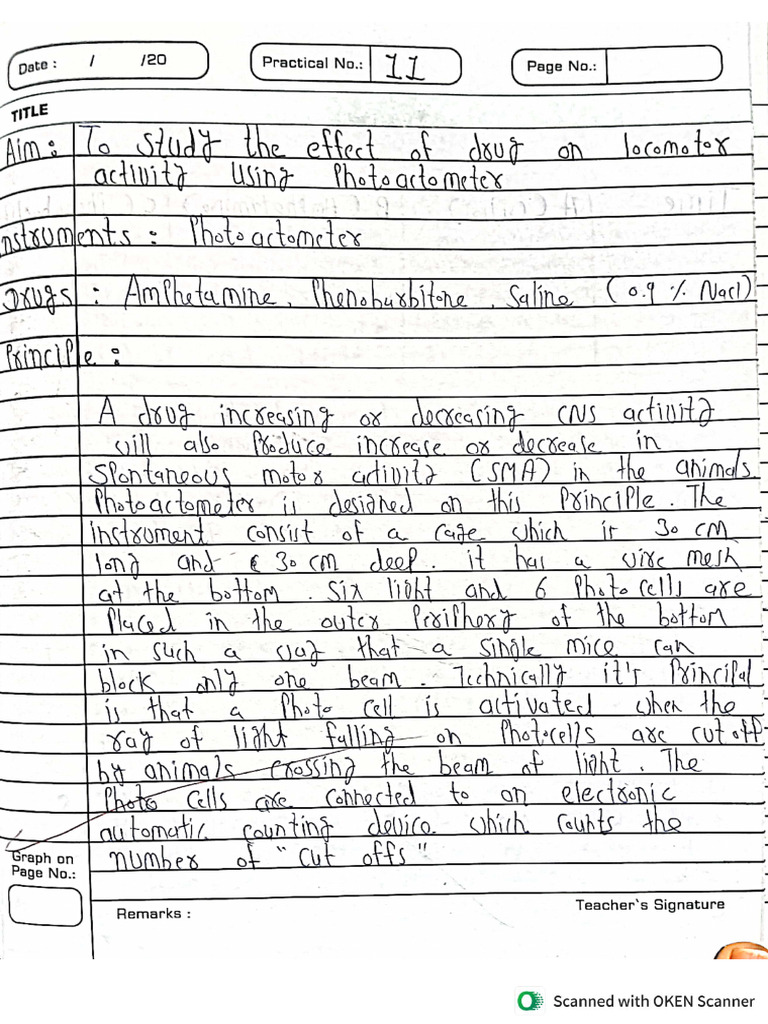 Date : / /20 Practical No.: 11 Page No.:
TITLE
Aim: To study the effect of drug on locomotor
activity using Photoactometer
Instruments : Photoactometer
Drugs : Amphetamine, Phenobarbitone Saline (0.9 % Nacl)
Principle :
A drug increasing or decreasing CNS activity
will also produce increase or decrease in
spontaneous motor activity (SMA) in the animals.
Photoactometer is designed on this Principle. The
instrument consist of a cage which is 30 cm
long and 30 cm deep. it has a wire mesh
at the bottom. Six light and 6 Photocells are
Placed in the outer Periphery of the bottom
in such a way that a single mice can
block only one beam. Technically it's Principal
is that a Photo cell is activated when the
ray of light falling on Photocells are cut off
by animals crossing the beam of light. The
Photo cells are connected to an electronic
automatic counting device which counts the
number of "cut offs"
Graph on
Page No.:
Remarks :
Teacher's Signature
Scanned with OKEN Scanner